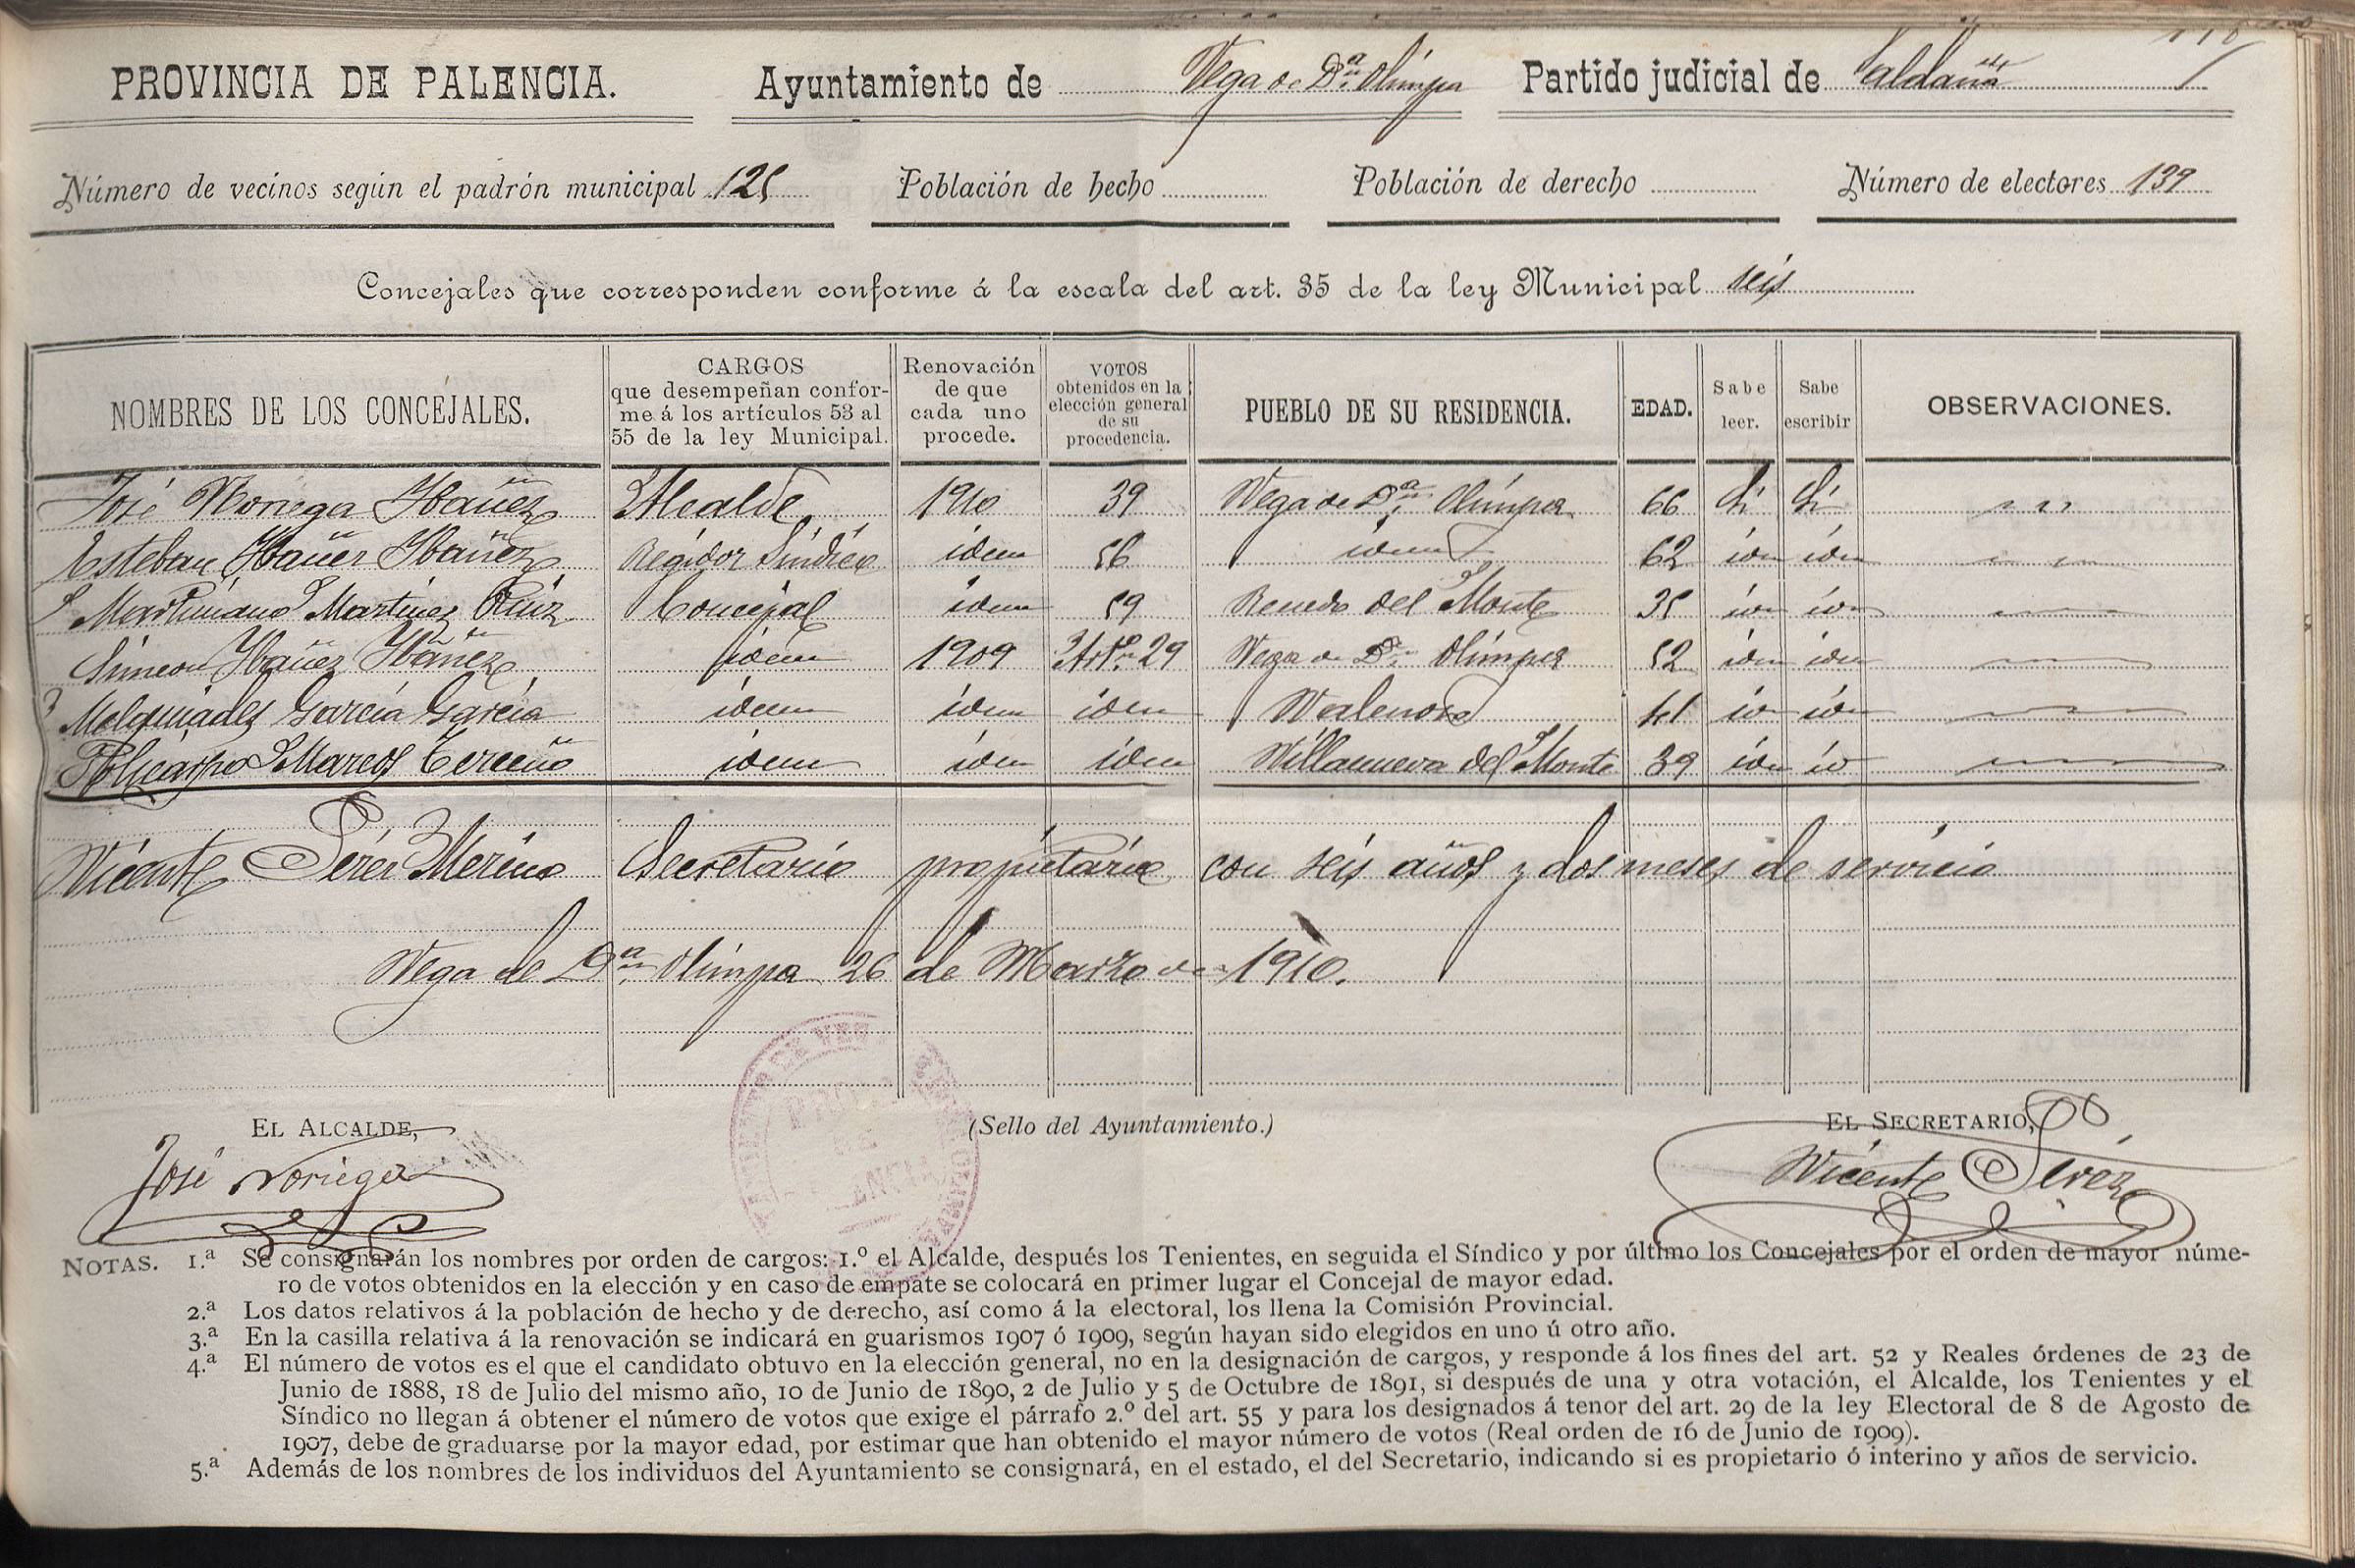 PROVINCIA DE PALENCIA. Ayuntamiento de Vega de Dª Olimpa Partido judicial de Saldaña
Número de vecinos según el padrón municipal 125 Población de hecho Población de derecho Número de electores 139
Concejales que corresponden conforme á la escala del art. 35 de la ley Municipal seis
NOMBRES DE LOS CONCEJALES. CARGOS que desempeñan conforme á los artículos 53 al 55 de la ley Municipal. Renovación de que cada uno procede. VOTOS obtenidos en la elección general de su procedencia. PUEBLO DE SU RESIDENCIA. EDAD. Sabe leer. Sabe escribir OBSERVACIONES.
José Noriega Ibañez Alcalde 1910 39 Vega de Dª Olimpa 66 Si Si " "
Esteban Ibañez Ibañez Regidor Sindico idem 56 idem 62 idn idn
Martiniano Martinez Ruiz Concejal idem 59 Renedo del Monte 35 idn idn
Simeon Ibañez Ibañez idem 1909 Artº 29 Vega de Dª Olimpa 52 idn idn
Melquiades Garcia Garcia idem idem idem 41 idn idn
Policarpo Marcos Terceño idem idem idem Villanueva del Monte 39 idn id
Vicente Pérez Merino Secretario propietario con seis años y dos meses de servicio
Vega de Dª Olimpa 26 de Marzo de 1910.
EL ALCALDE, (Sello del Ayuntamiento.) EL SECRETARIO,
José Noriega Vicente Pérez
PROV.ª DE PALENCIA
NOTAS. 1.ª Se consignarán los nombres por orden de cargos: 1.º el Alcalde, después los Tenientes, en seguida el Síndico y por último los Concejales por el orden de mayor núme-
ro de votos obtenidos en la elección y en caso de empate se colocará en primer lugar el Concejal de mayor edad.
2.ª Los datos relativos á la población de hecho y de derecho, así como á la electoral, los llena la Comisión Provincial.
3.ª En la casilla relativa á la renovación se indicará en guarismos 1907 ó 1909, según hayan sido elegidos en uno ú otro año.
4.ª El número de votos es el que el candidato obtuvo en la elección general, no en la designación de cargos, y responde á los fines del art. 52 y Reales órdenes de 23 de
Junio de 1888, 18 de Julio del mismo año, 10 de Junio de 1890, 2 de Julio y 5 de Octubre de 1891, si después de una y otra votación, el Alcalde, los Tenientes y el
Síndico no llegan á obtener el número de votos que exige el párrafo 2.º del art. 55 y para los designados á tenor del art. 29 de la ley Electoral de 8 de Agosto de
1907, debe de graduarse por la mayor edad, por estimar que han obtenido el mayor número de votos (Real orden de 16 de Junio de 1909).
5.ª Además de los nombres de los individuos del Ayuntamiento se consignará, en el estado, el del Secretario, indicando si es propietario ó interino y años de servicio.